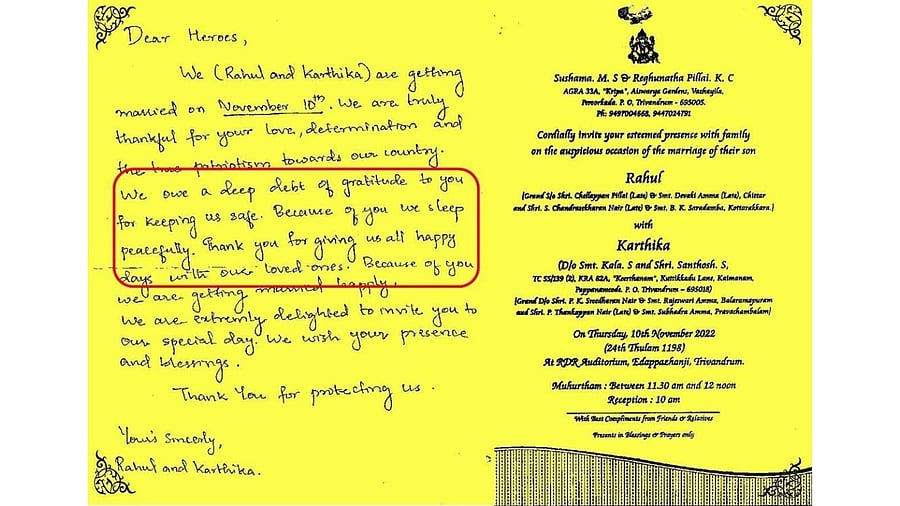 Dear Heroes,
We (Rahul and Karthika) are getting
married on November 10th. We are truly
thankful for your love, determination and
the true patriotism towards our country.
We owe a deep debt of gratitude to you
for keeping us safe. Because of you we sleep
peacefully. Thank you for giving us all happy
days with our loved ones. Because of you
we are getting married happily.
We are extremly delighted to invite you to
our special day. We wish your presence
and blessings.
Thank You for protecting us.
Your's Sincerly,
Rahul and Karthika.
Sushama. M. S & Reghunatha Pillai. K. C
AGRA 33A, "Kripa", Aiswarya Gardens, Vazhayila,
Peroorkada. P. O, Trivandrum - 695005.
Ph: 9497004668, 9447024791
Cordially invite your esteemed presence with family
on the auspicious occasion of the marriage of their son
Rahul
(Grand S/o Shri. Chellappan Pillai (Late) & Smt. Devaki Amma (Late), Chittar
and Shri. S. Chandrasekharan Nair (Late) & Smt. B. K. Saradamba, Kottarakkara.)
with
Karthika
(D/o Smt. Kala. S and Shri. Santhosh. S,
TC 55/139 (2), KRA 62A, "Keerthanam", Kuttikkadu Lane, Kaimanam,
Pappanamcode. P. O, Trivandrum – 695018)
(Grand D/o Shri. P. K. Sreedharan Nair & Smt. Rajeswari Amma, Balaramapuram
and Shri. P. Thankappan Nair (Late) & Smt. Subhadra Amma, Pravachambalam)
On Thursday, 10th November 2022
(24th Thulam 1198)
At RDR Auditorium, Edappazhanji, Trivandrum.
Muhurtham : Between 11.30 am and 12 noon
Reception : 10 am
With Best Compliments from Friends & Relatives
Presents in Blessings & Prayers only